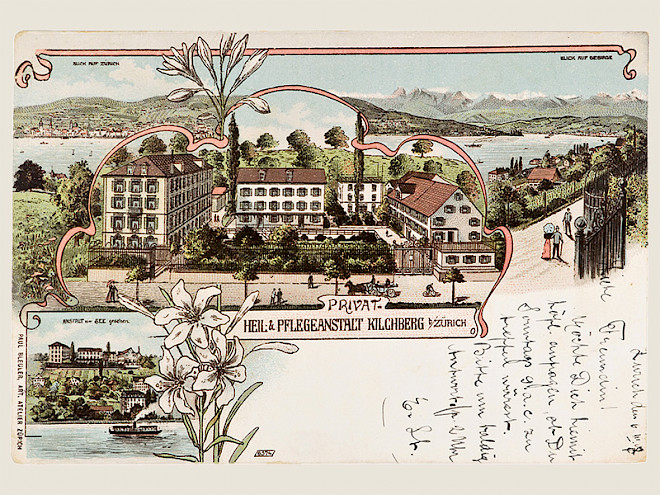 BLICK AUF ZÜRICH
BLICK AUF GEBIRGE
PRIVAT-
HEIL- & PFLEGEANSTALT KILCHBERG b/ZÜRICH
ANSTALT vom SEE gesehen.
PAUL BLEULER, ART. ATELIER ZÜRICH
Zürich den
Freundin!
Möchte Dich hiermit
anfragen, ob Du
Sonntags
treffen würest.
Bitte um baldig
Antwort
E. St.